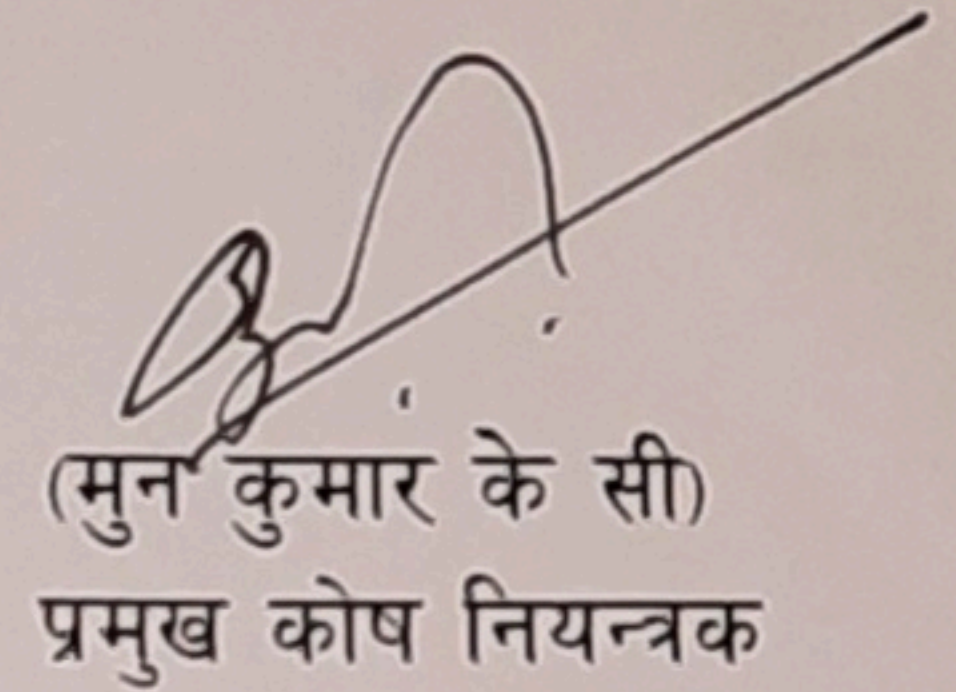 (मुन कुमार के सी)
प्रमुख कोष नियन्त्रक